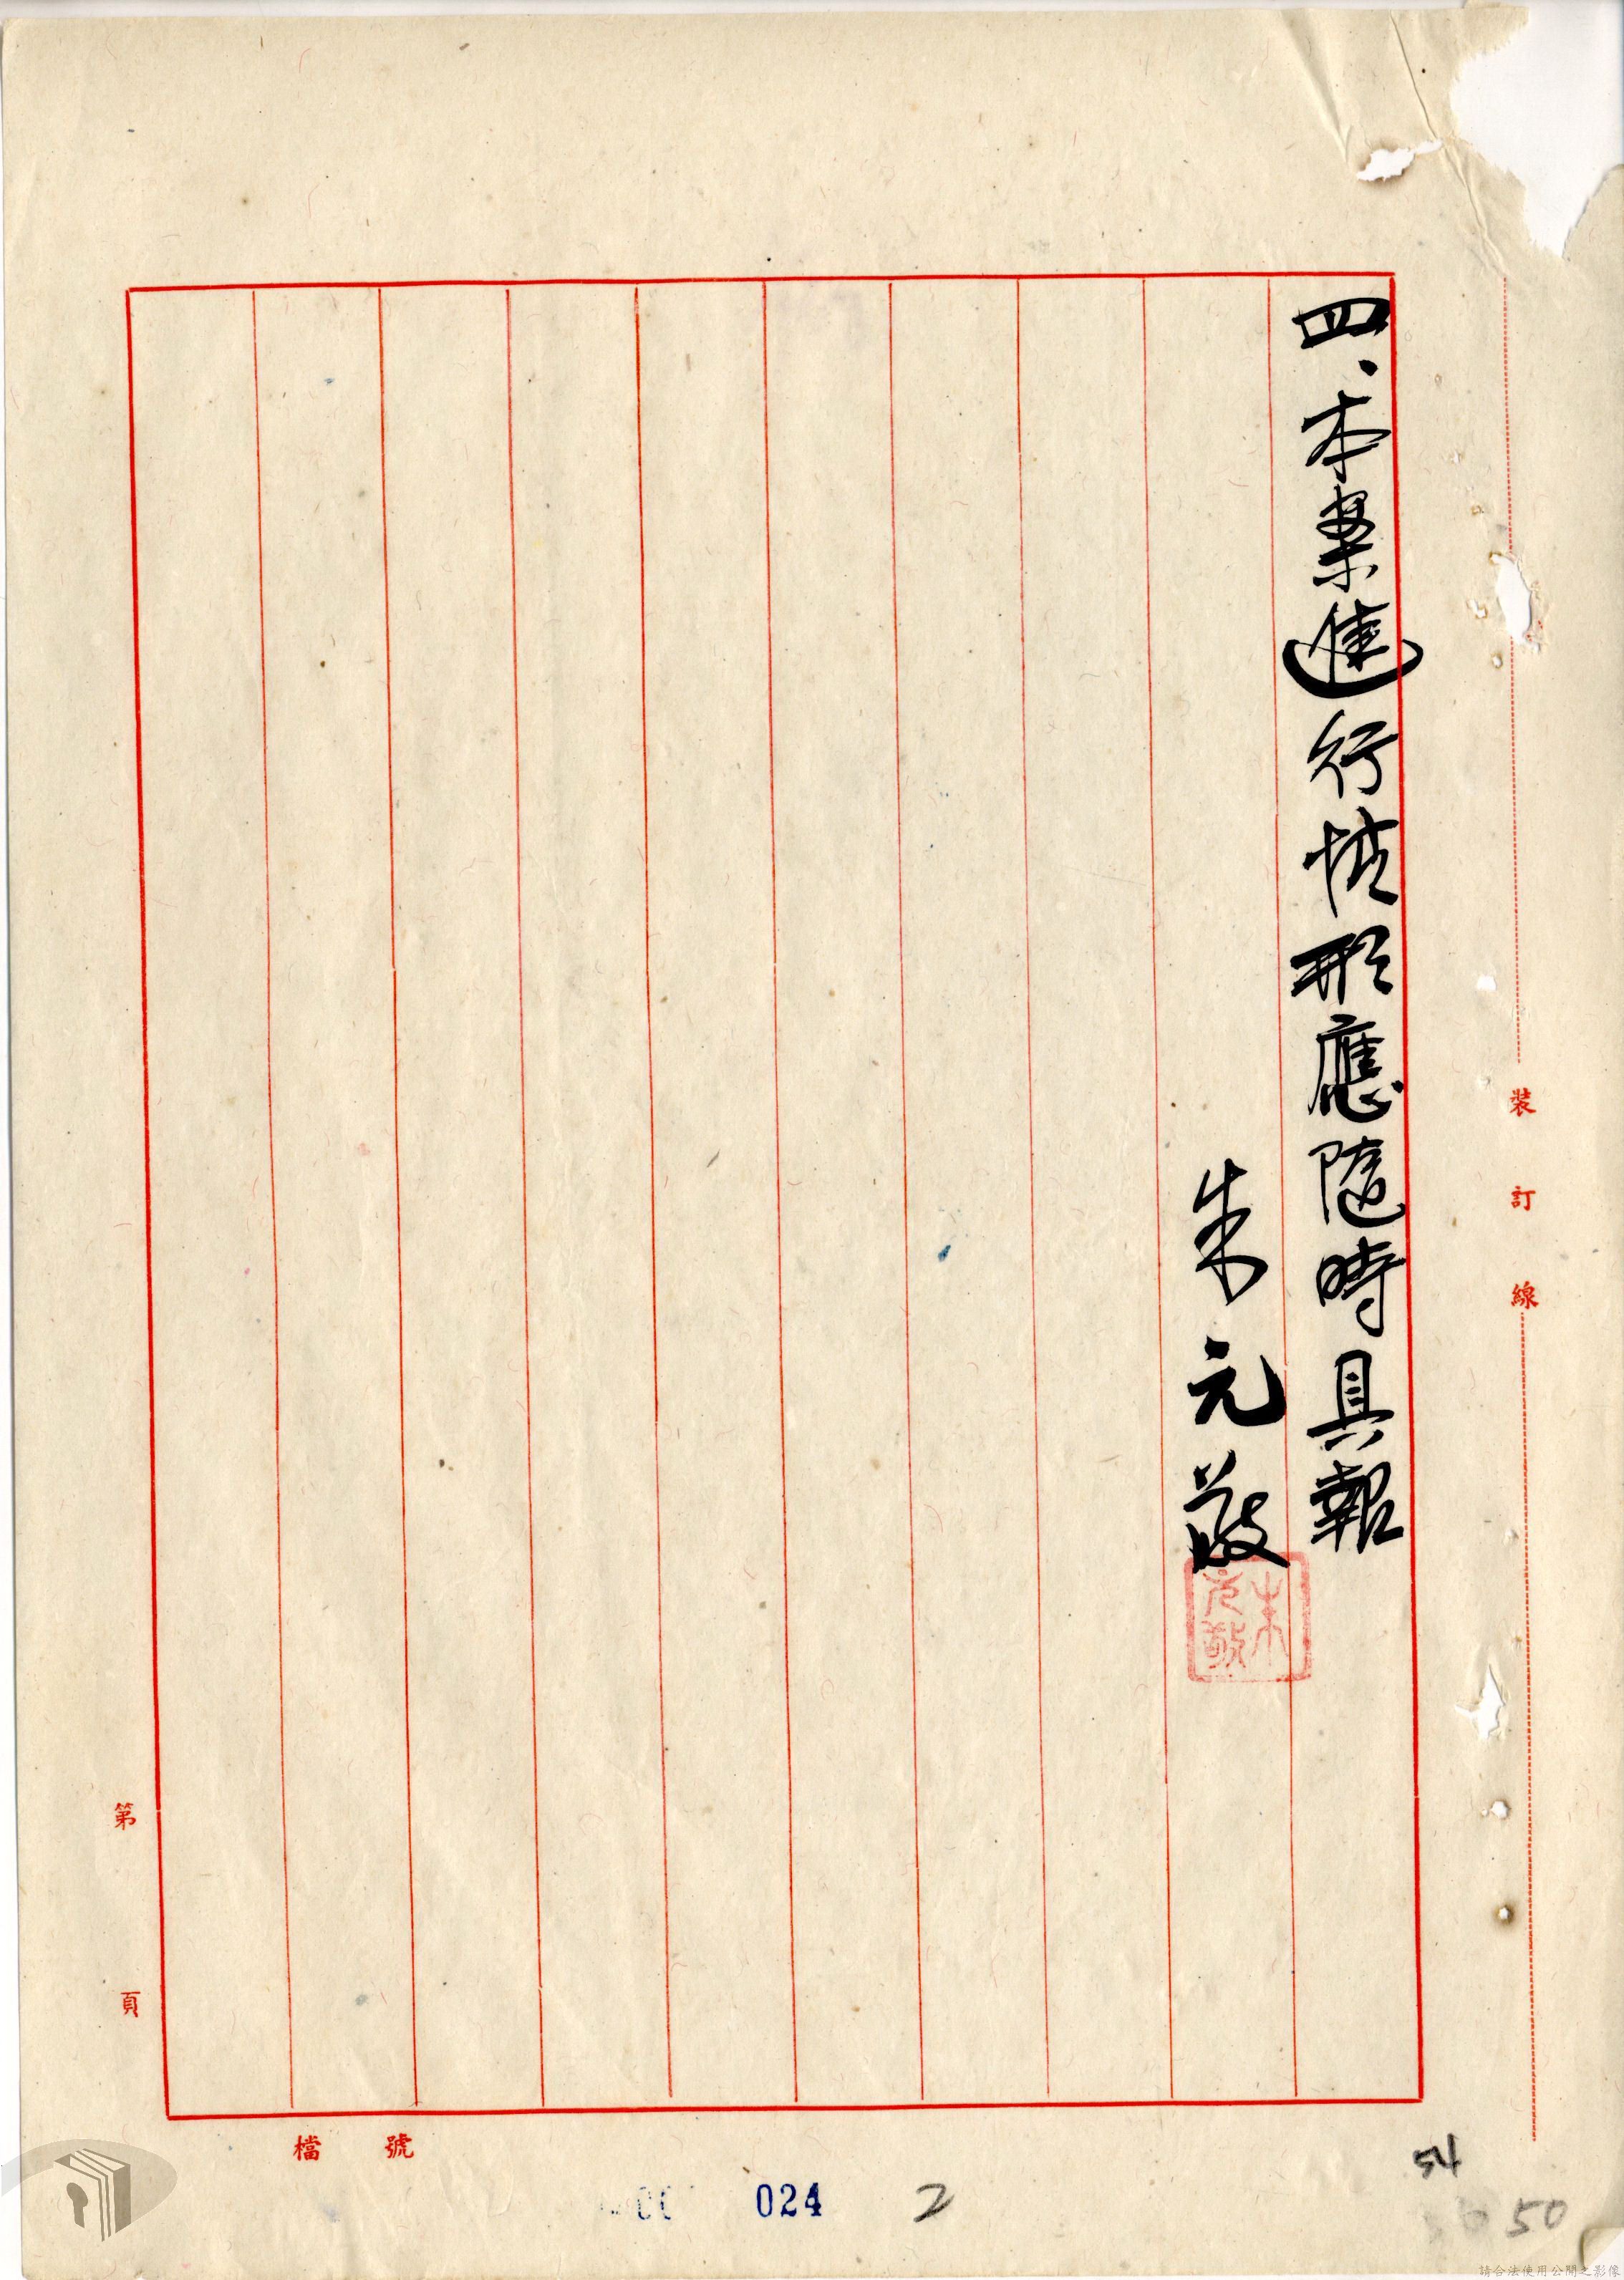 四、本案進行情形應隨時具報
朱元敬
朱元敬
裝訂線
第頁
檔號
024
2
54
50
請合法使用公開之影像